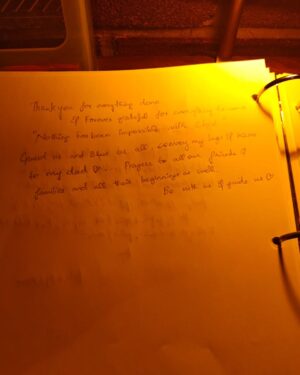 Thank you for everything done
Forever grateful for everything
"Nothing has been Impossible with
Guard us and Bless be all convey my hugs & kisses
to my dad Prayers to all our friends &
families and all their beginnings as well.
Be with us & guide us